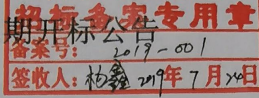 招标备案专用章
期开标公告
备案号: 2019-001
签收人: 杨鑫 2019年7月24日